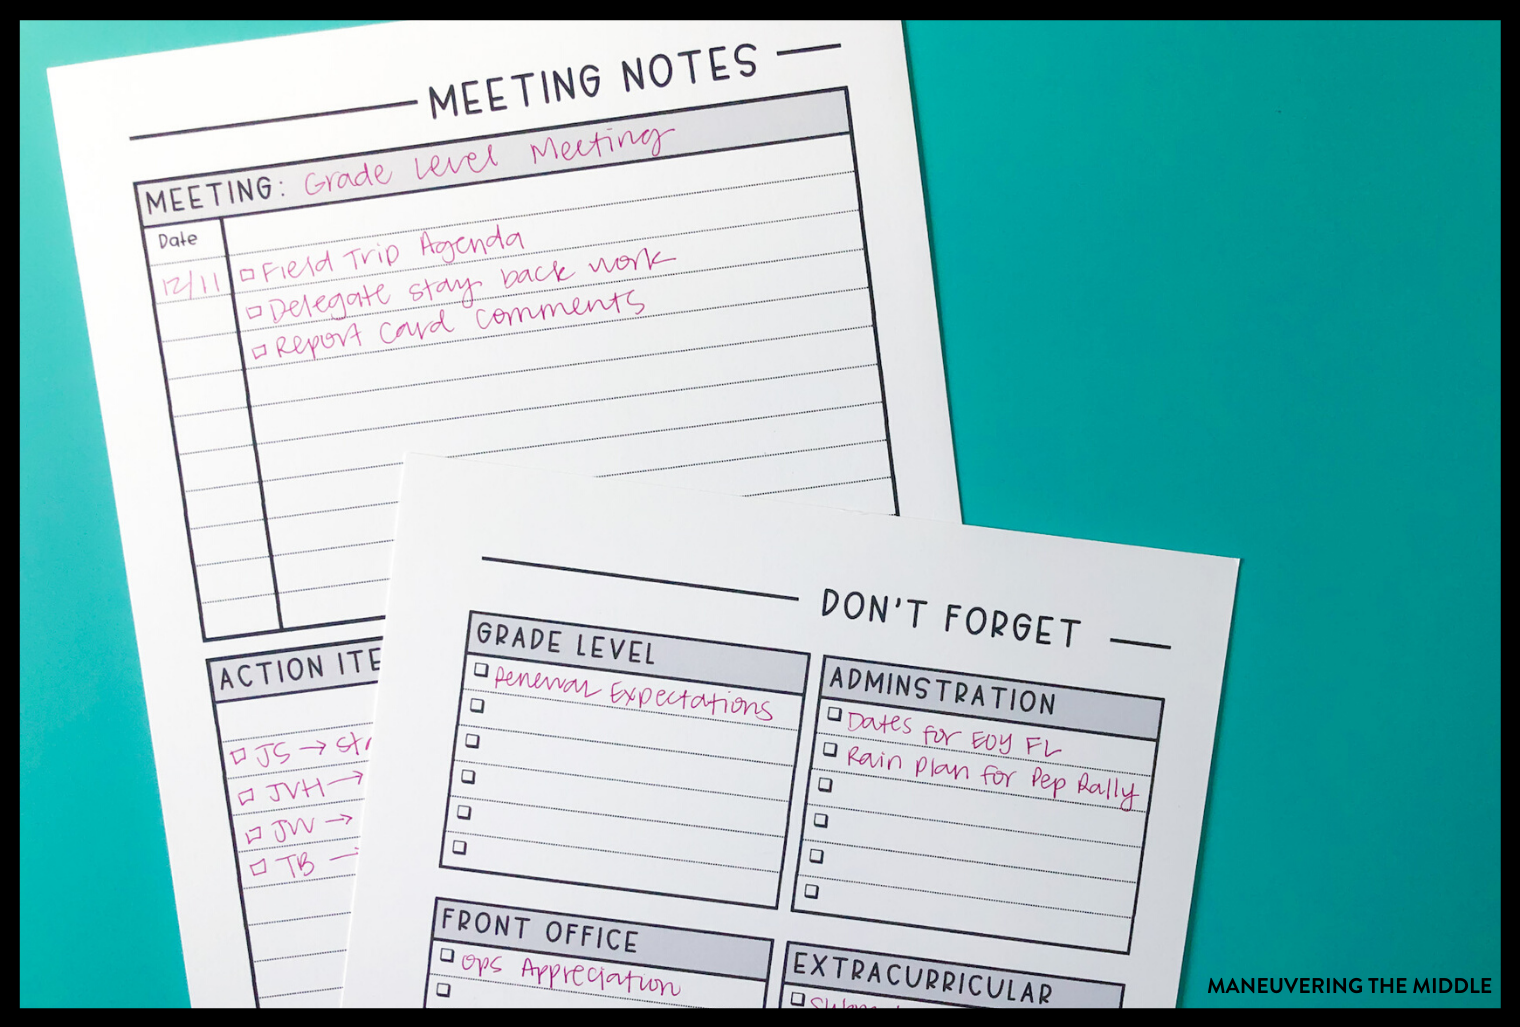 MEETING NOTES
MEETING: Grade Level Meeting
Date
12/11 Field Trip Agenda
Delegate stay back work
Report Card Comments
ACTION ITE
JS → str
JVH →
JW →
TB →
DON'T FORGET
GRADE LEVEL
Renewal Expectations
ADMINSTRATION
Dates for EOY FL
Rain Plan for Pep Rally
FRONT OFFICE
Ops Appreciation
EXTRACURRICULAR
MANEUVERING THE MIDDLE